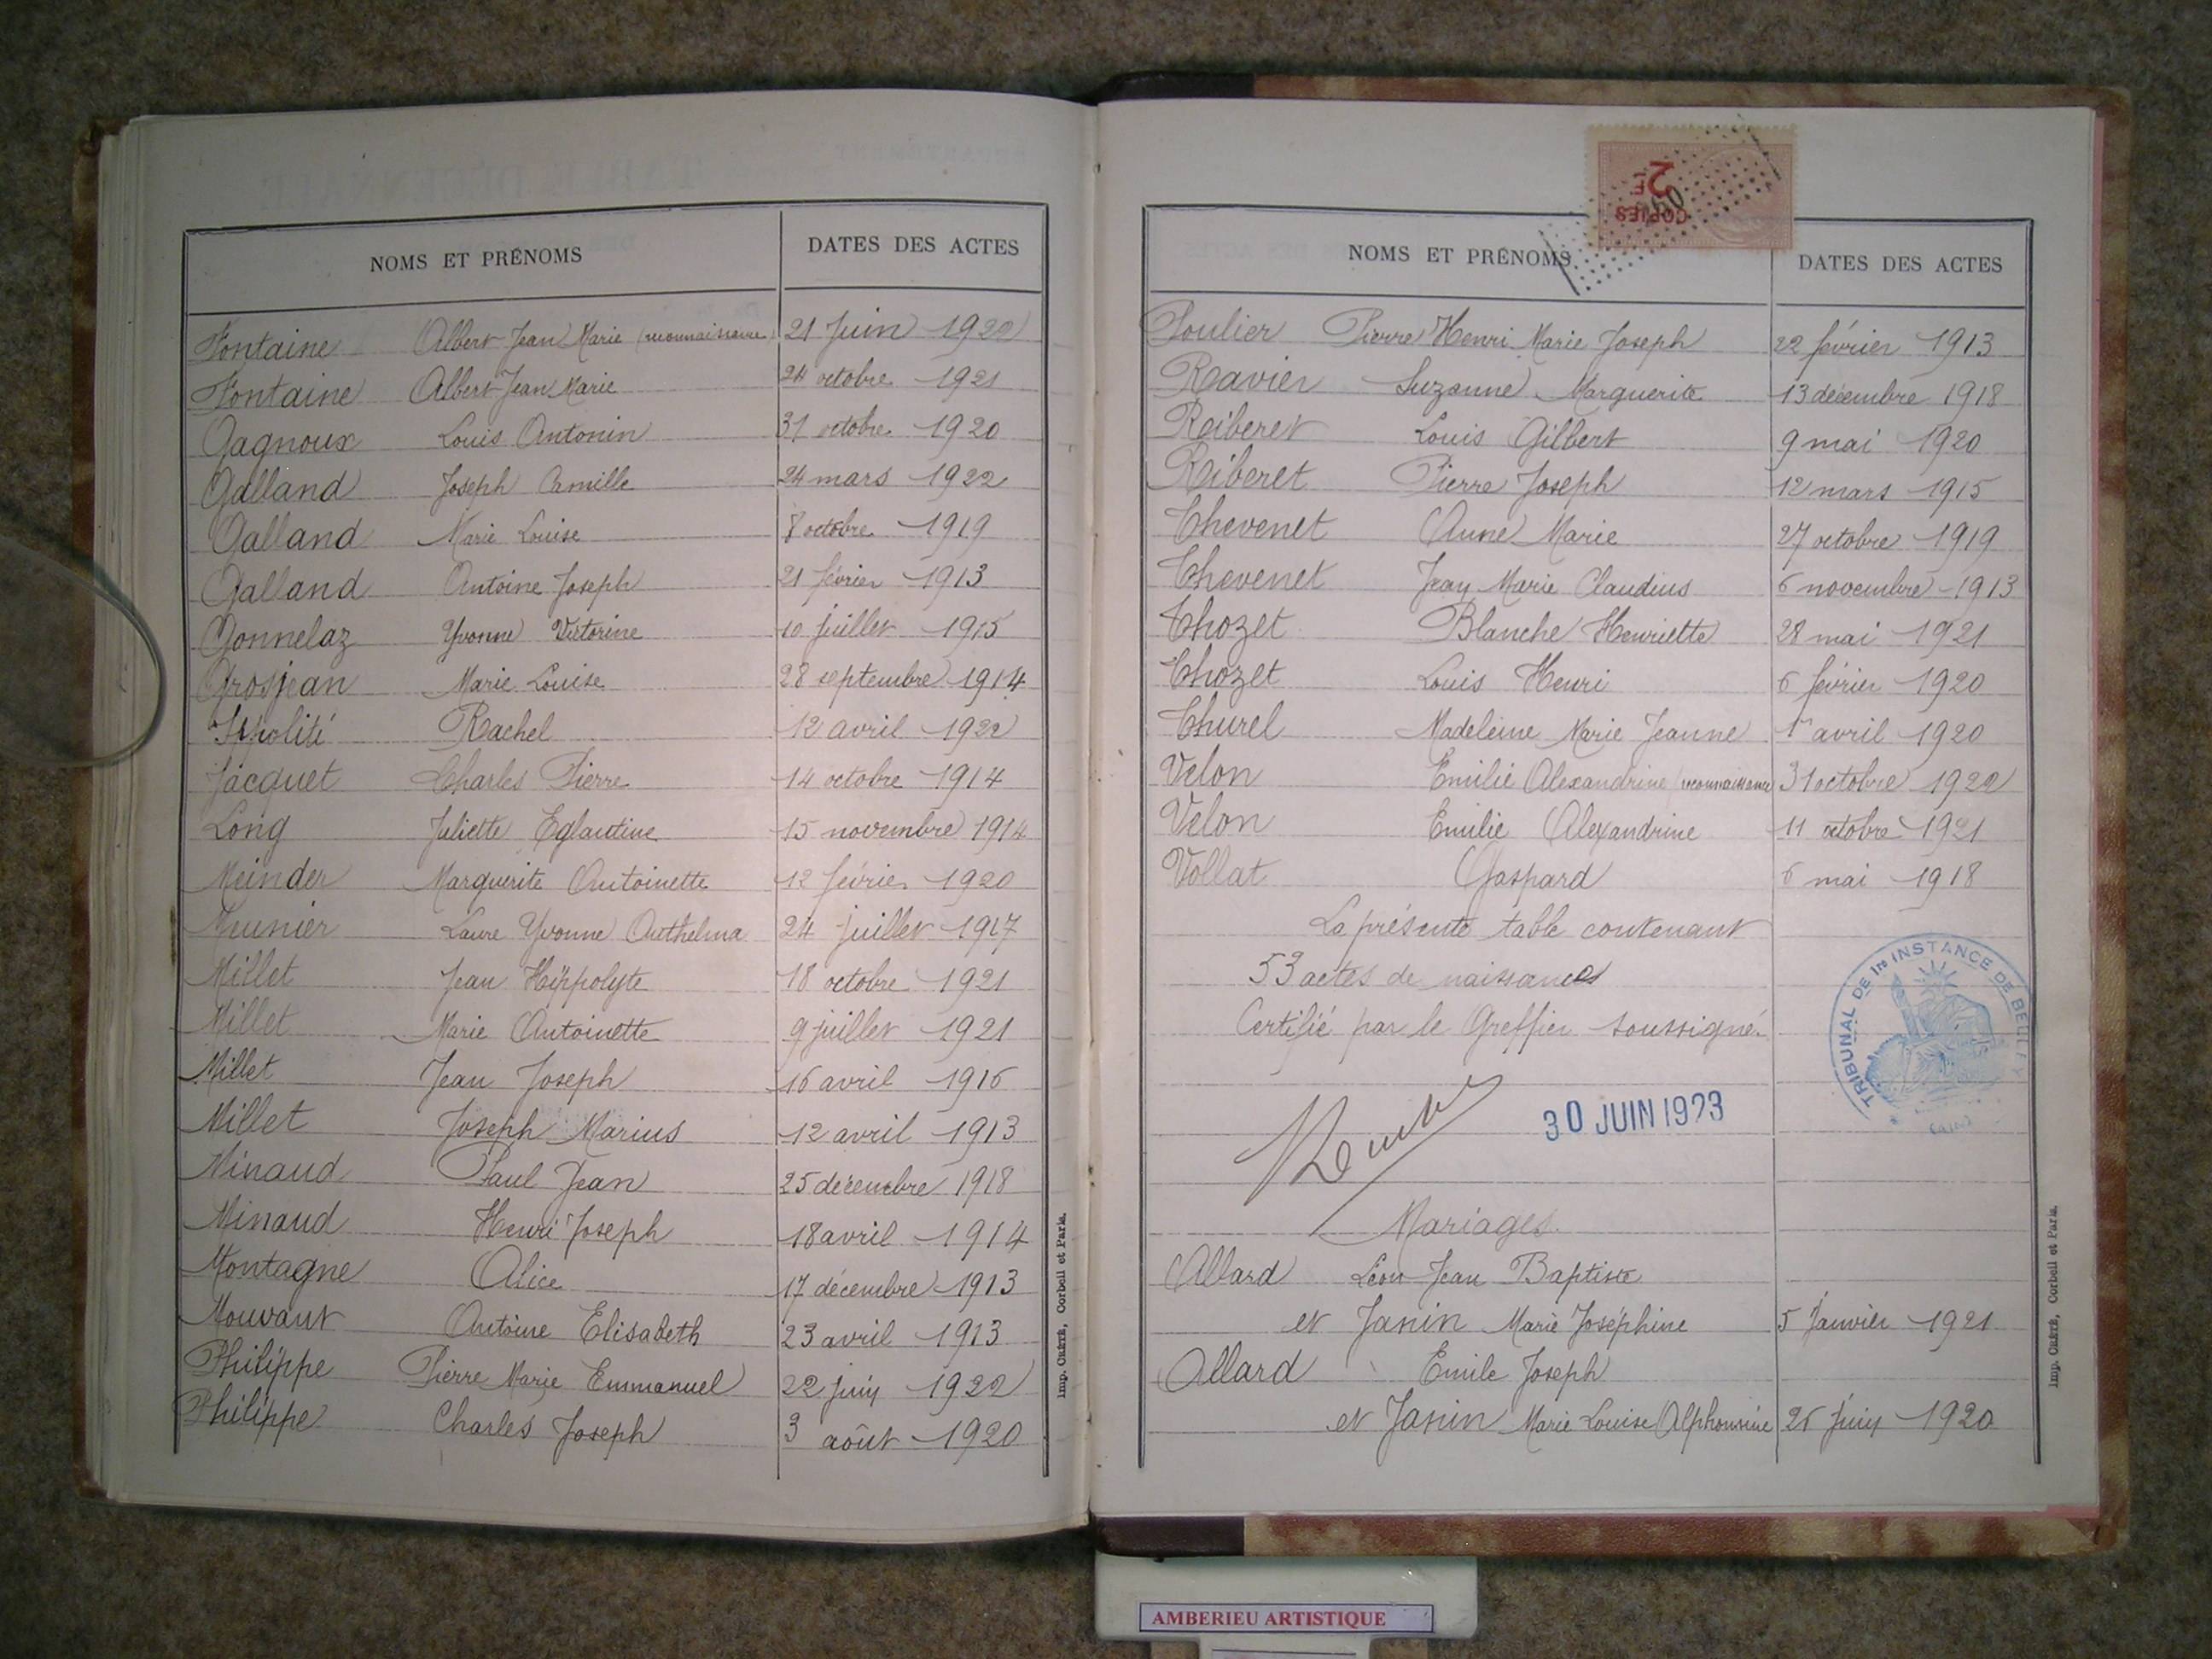 NOMS ET PRÉNOMS DATES DES ACTES
Fontaine Albert Jean Marie (reconnaissance) 21 Juin 1920
Fontaine Albert Jean Marie 24 octobre 1921
Gagnoux Louis Antonin 31 octobre 1920
Galland Joseph Camille 24 mars 1922
Galland Marie Louise 8 octobre 1919
Galland Antoine Joseph 21 février 1913
Gonnelaz Yvonne Victorine 10 juillet 1915
Grosjean Marie Louise 28 septembre 1914
Rachel 12 avril 1922
Jacquet Charles Pierre 14 octobre 1914
Long Juliette Eglantine 15 novembre 1914
Meinder Marguerite Antoinette 12 février 1920
Meunier Laure Yvonne Anthelma 24 juillet 1917
Millet Jean Hippolyte 18 octobre 1921
Millet Marie Antoinette 9 juillet 1921
Millet Jean Joseph 16 avril 1916
Millet Joseph Marius 12 avril 1913
Minaud Paul Jean 25 décembre 1918
Minaud Henri Joseph 18 avril 1914
Montagne Alice 17 décembre 1913
Mouvant Antoine Elisabeth 23 avril 1913
Philippe Pierre Marie Emmanuel 22 juin 1922
Philippe Charles Joseph 3 août 1920
Imp. CRÉTÉ, Corbeil et Paris.
2 F
COPIES
NOMS ET PRÉNOMS DATES DES ACTES
Poulier Pierre Henri Marie Joseph 22 février 1913
Ravier Suzanne Marguerite 13 décembre 1918
Riberet Louis Gilbert 9 mai 1920
Riberet Pierre Joseph 12 mars 1915
Thevenet Anne Marie 27 octobre 1919
Thevenet Jean Marie Claudius 6 novembre 1913
Thozet Blanche Henriette 28 mai 1921
Thozet Louis Henri 6 février 1920
Thurel Madeleine Marie Jeanne 1er avril 1920
Velon Emilie Alexandrine (reconnaissance) 31 octobre 1922
Velon Emilie Alexandrine 11 octobre 1921
Vollat Gaspard 6 mai 1918
La présente table contenant
53 actes de naissances
Certifié par le Greffier soussigné.
TRIBUNAL DE 1re INSTANCE DE
(AIN)
30 JUIN 1923
Mariages.
Allard Léon Jean Baptiste
et Janin Marie Joséphine 5 Janvier 1921
Allard Emile Joseph
et Janin Marie Louise Alphonsine 26 juin 1920
Imp. CRÉTÉ, Corbeil et Paris.
AMBERIEU ARTISTIQUE